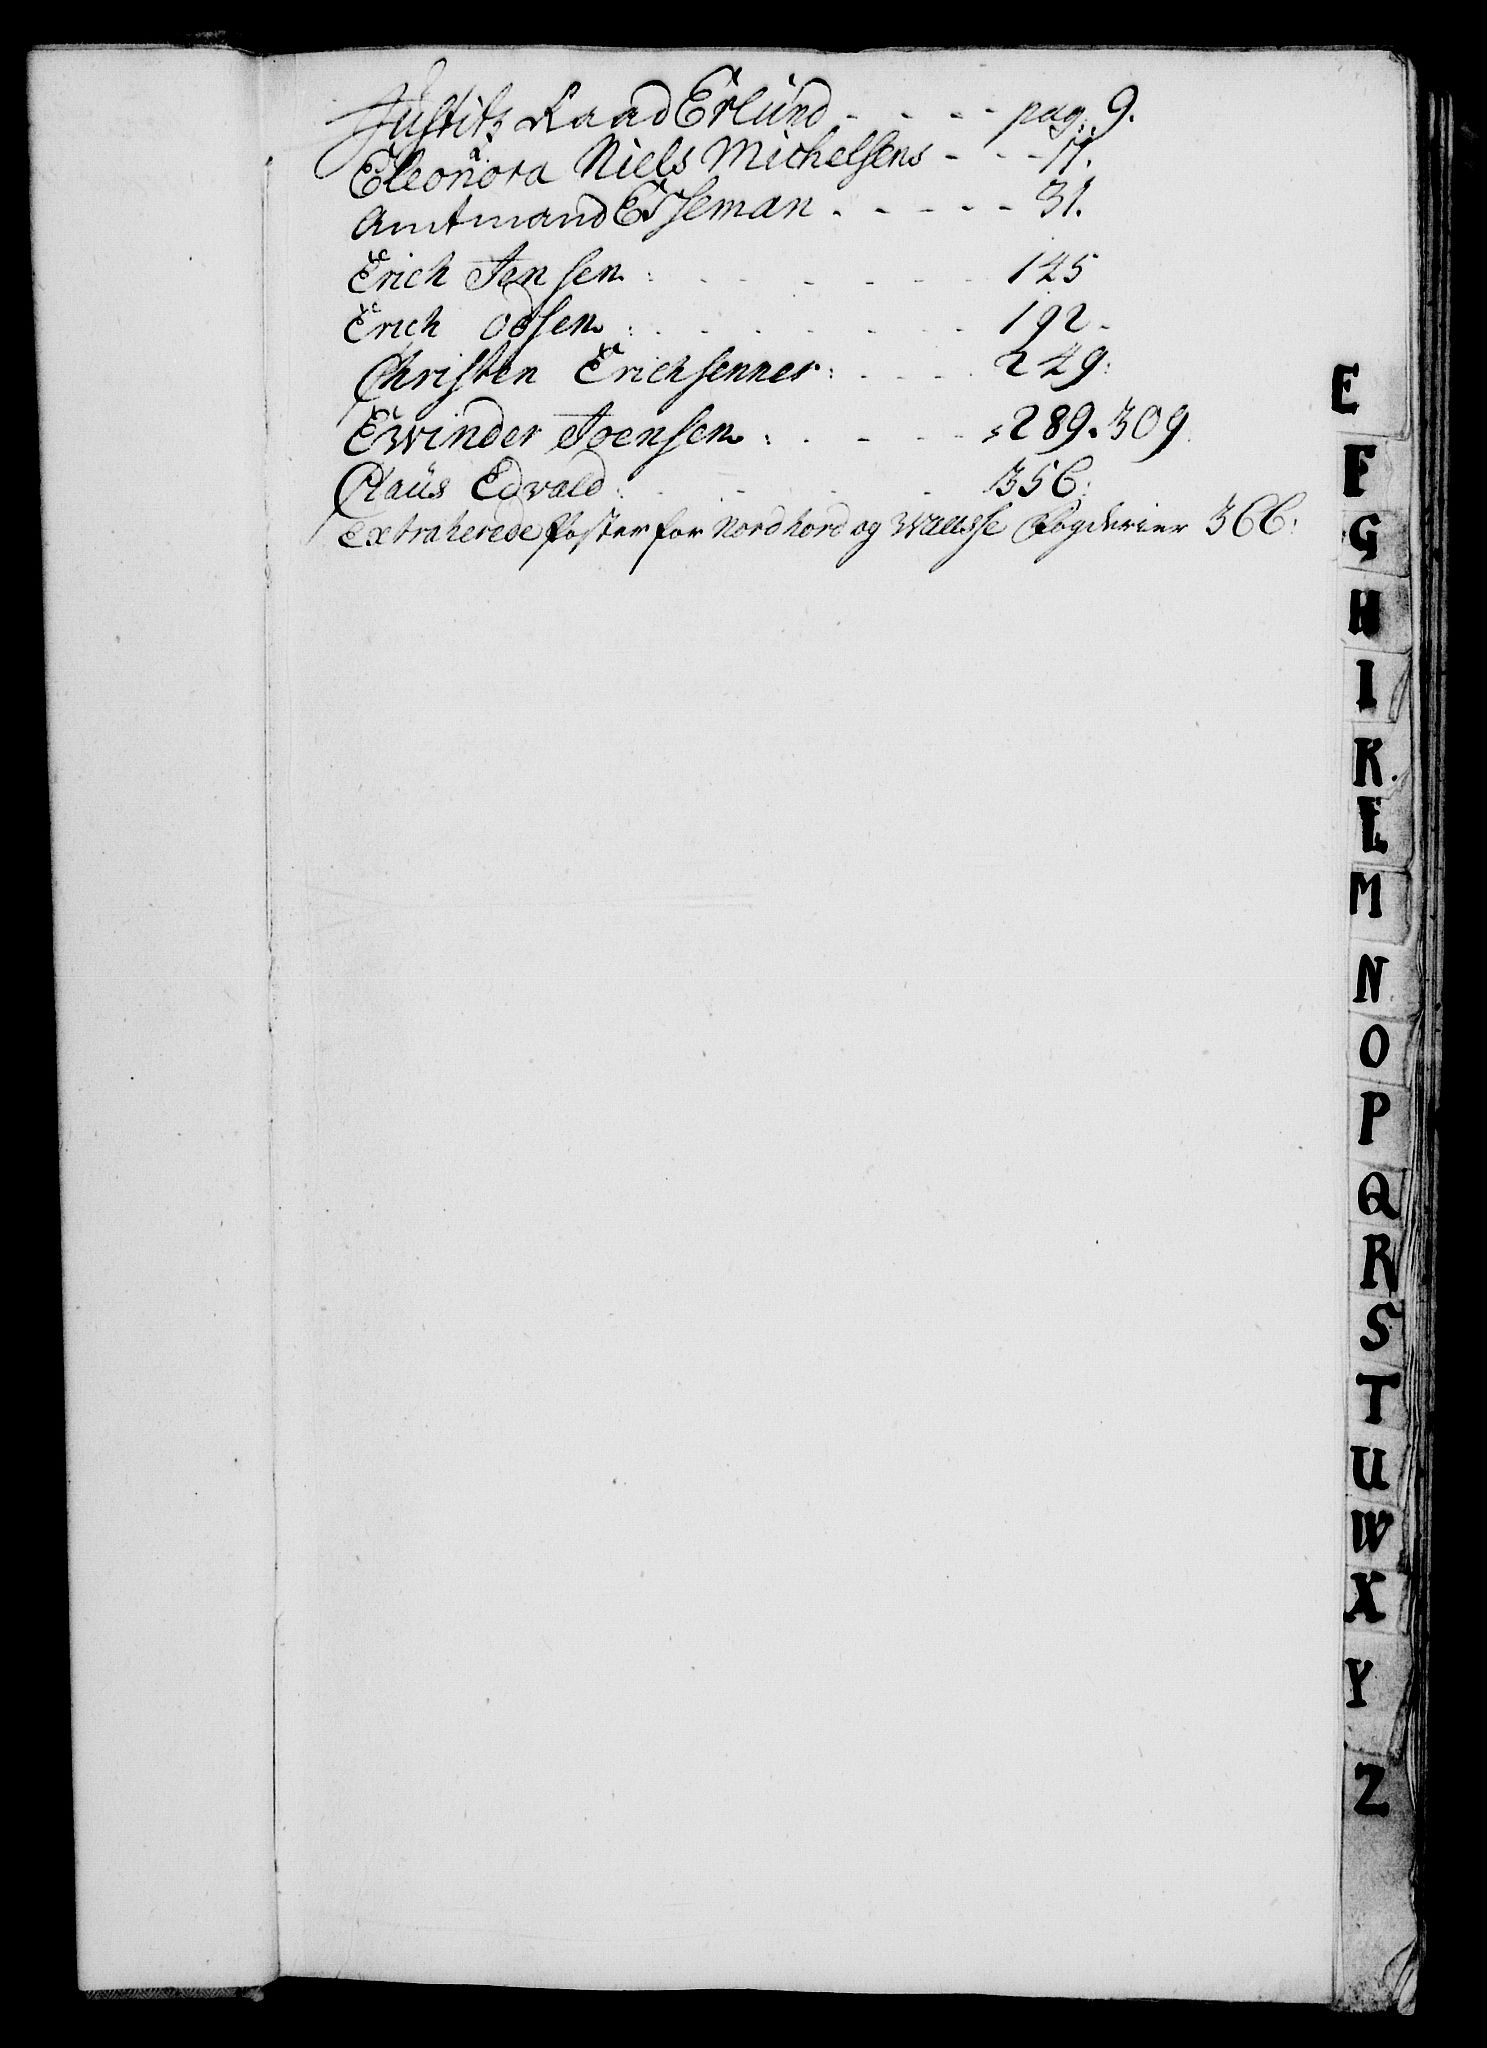 Justitz Raad Erlund - - - - pag: 9.
Eleonora Niels Michelsens - - - 11.
Amtmand Erseman - - - - - 31.
Erich Jensen: - - - - - - - 145
Erich Odsen: - - - - - - - 192 -
Christen Erichsenner: - - - - 249:
Ewinder Joensen: - - - - - 289. 309
Claus Edvald: - - - - - 356:
Extraherede Poster for Nordhord og Fogderier 366:
E
F
G
H
I
K
L
M
N
O
P
Q
R
S
T
U
W
X
Y
Z